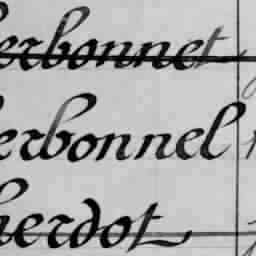 erbonnet
erbonnel
herdot